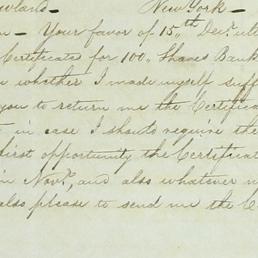 New York –
– Your favor of 15th Decr. ulti
Certificate for 100. Shares Bank
whether I made myself suff
you to return me the Certifica
in case I should require the
first opportunity the Certificat
in Novr., and also whatever
also please to send me the C